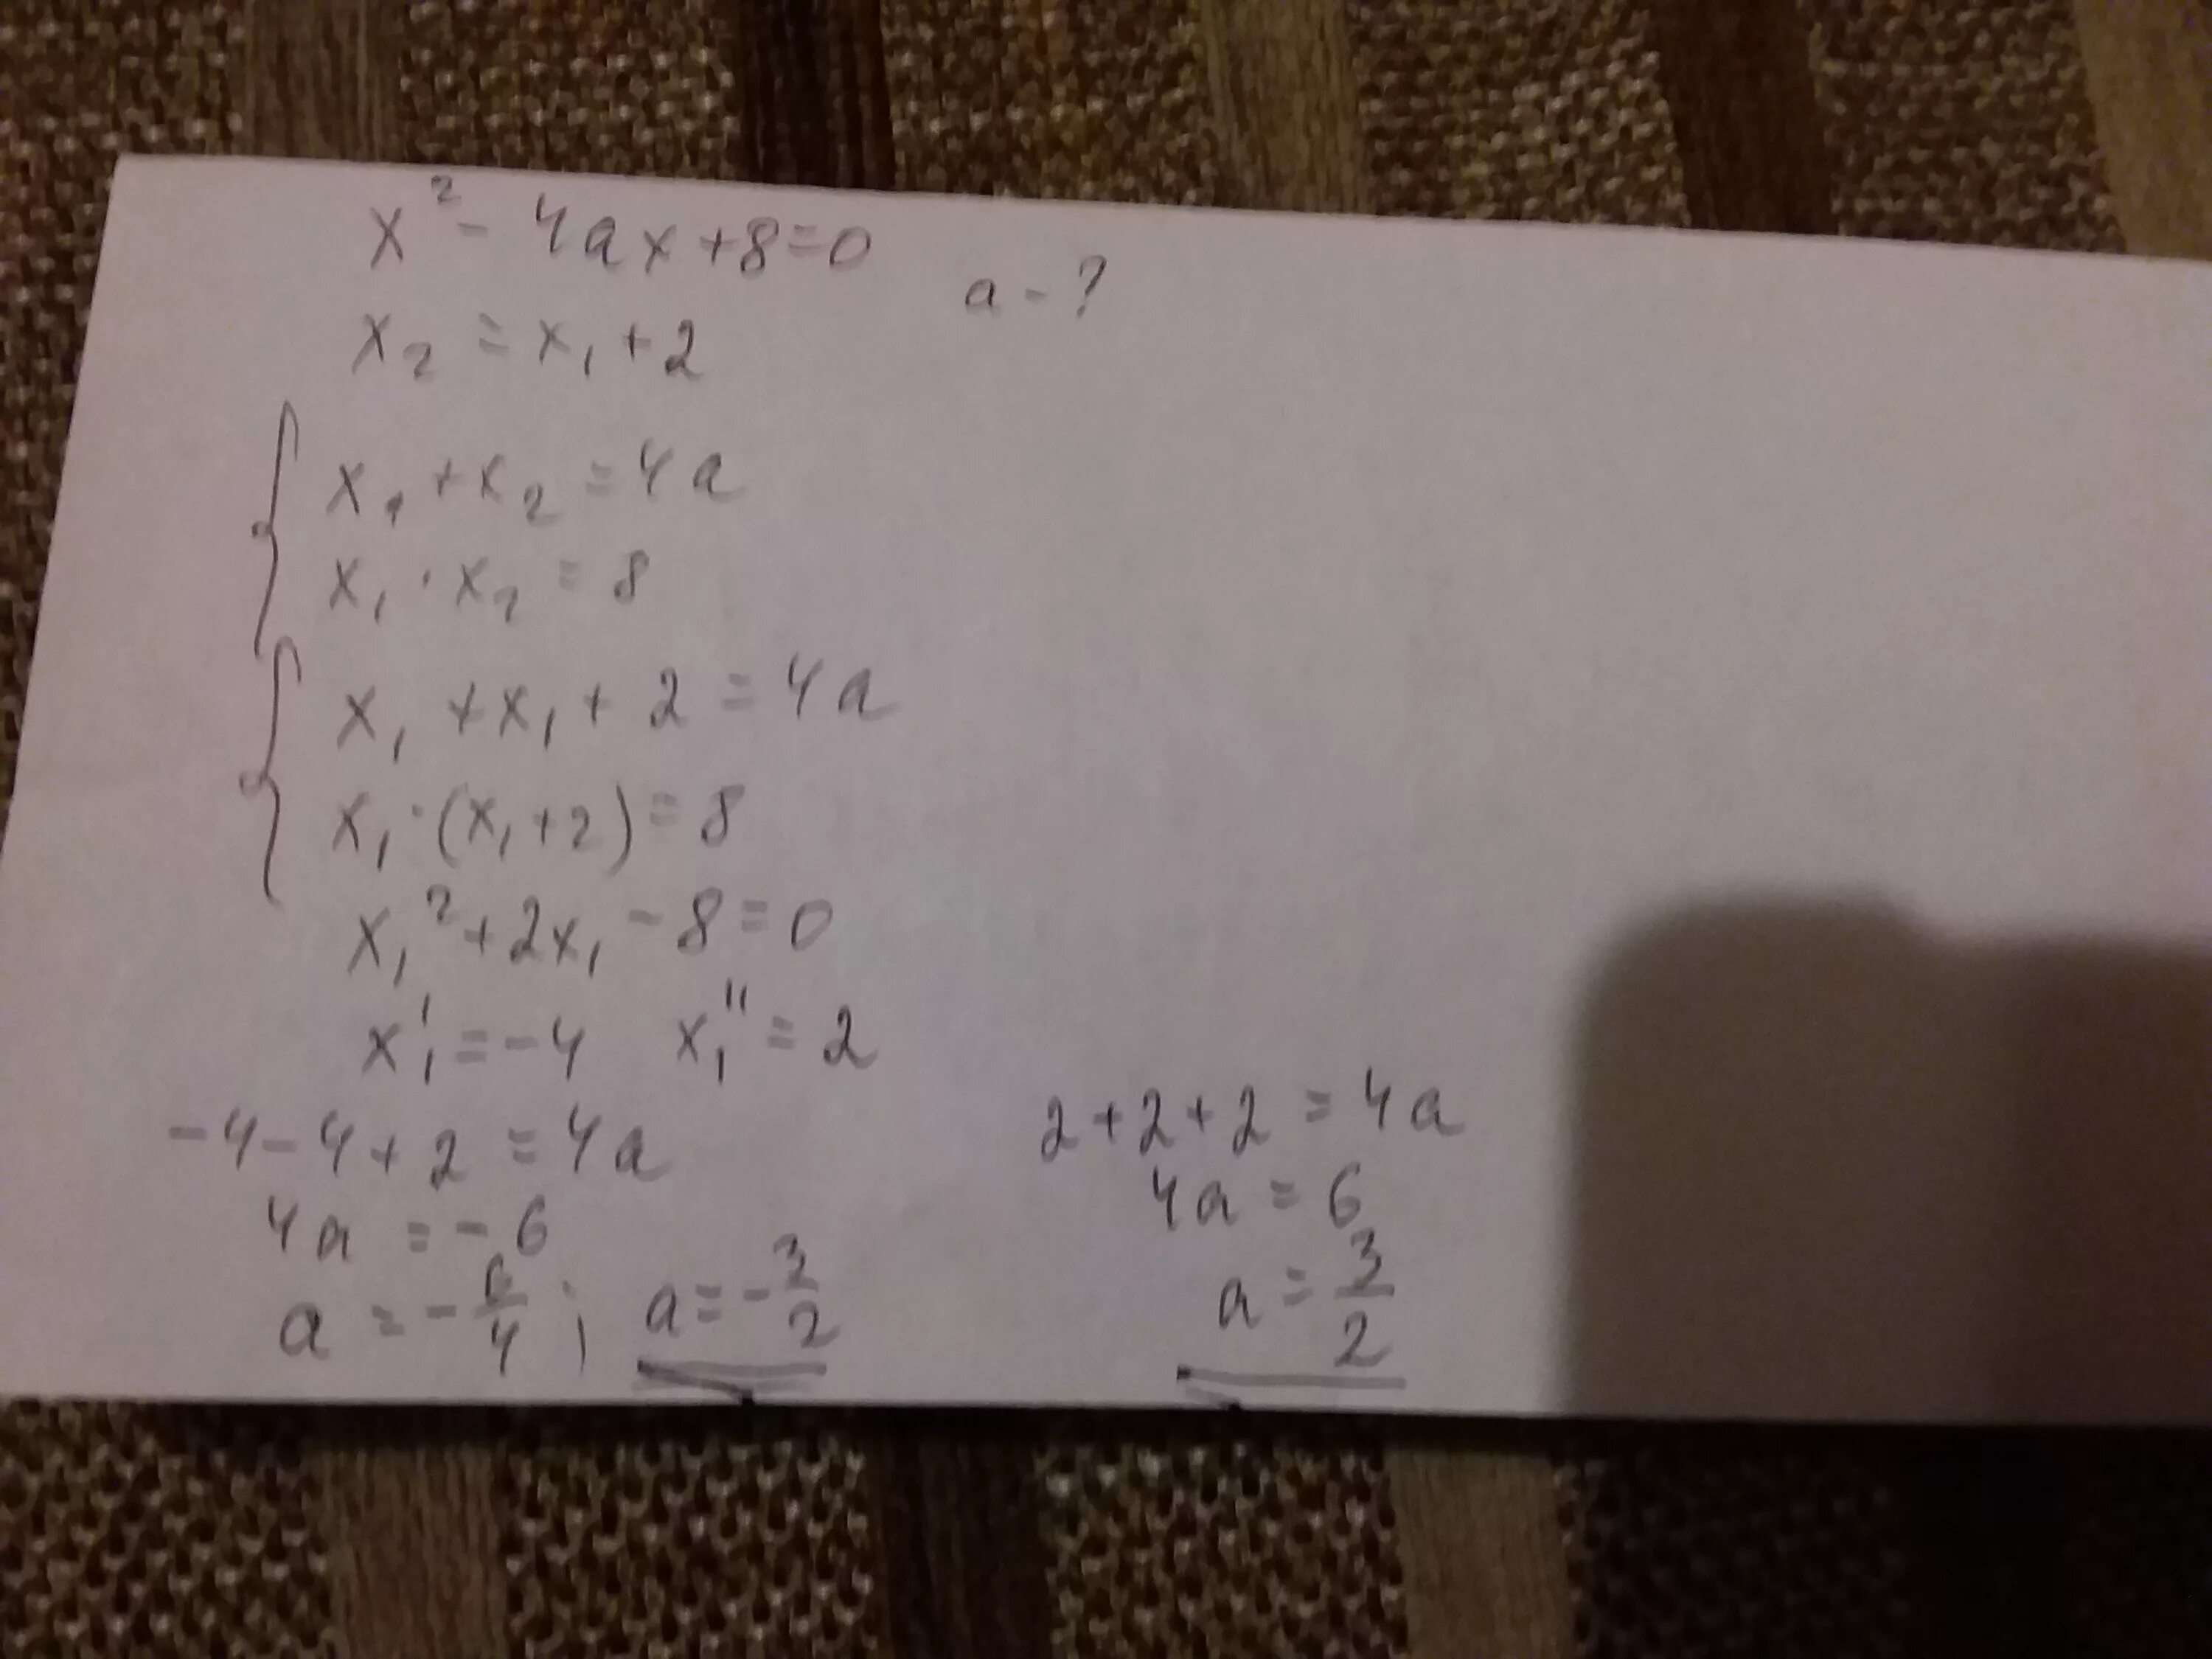 x² - 4ax + 8 = 0
a - ?
x₂ = x₁ + 2
x₁ + x₂ = 4a
x₁ · x₂ = 8
x₁ + x₁ + 2 = 4a
x₁ · (x₁ + 2) = 8
x₁² + 2x₁ - 8 = 0
x₁' = -4 x₁'' = 2
-4 - 4 + 2 = 4a
4a = -6
a = -6/4 ; a = -3/2
2 + 2 + 2 = 4a
4a = 6
a = 3/2